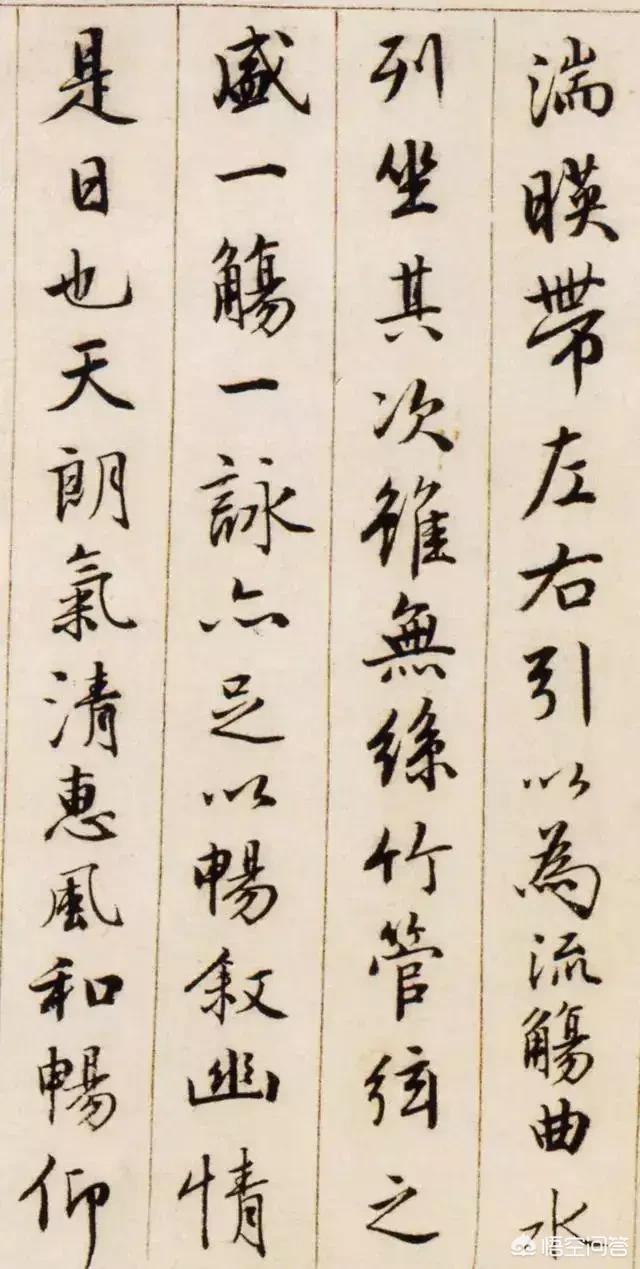 湍暎帶左右引以為流觴曲水
列坐其次雖無絲竹管弦之
盛一觴一詠亦足以暢敘幽情
是日也天朗氣清惠風和暢仰
悟空问答